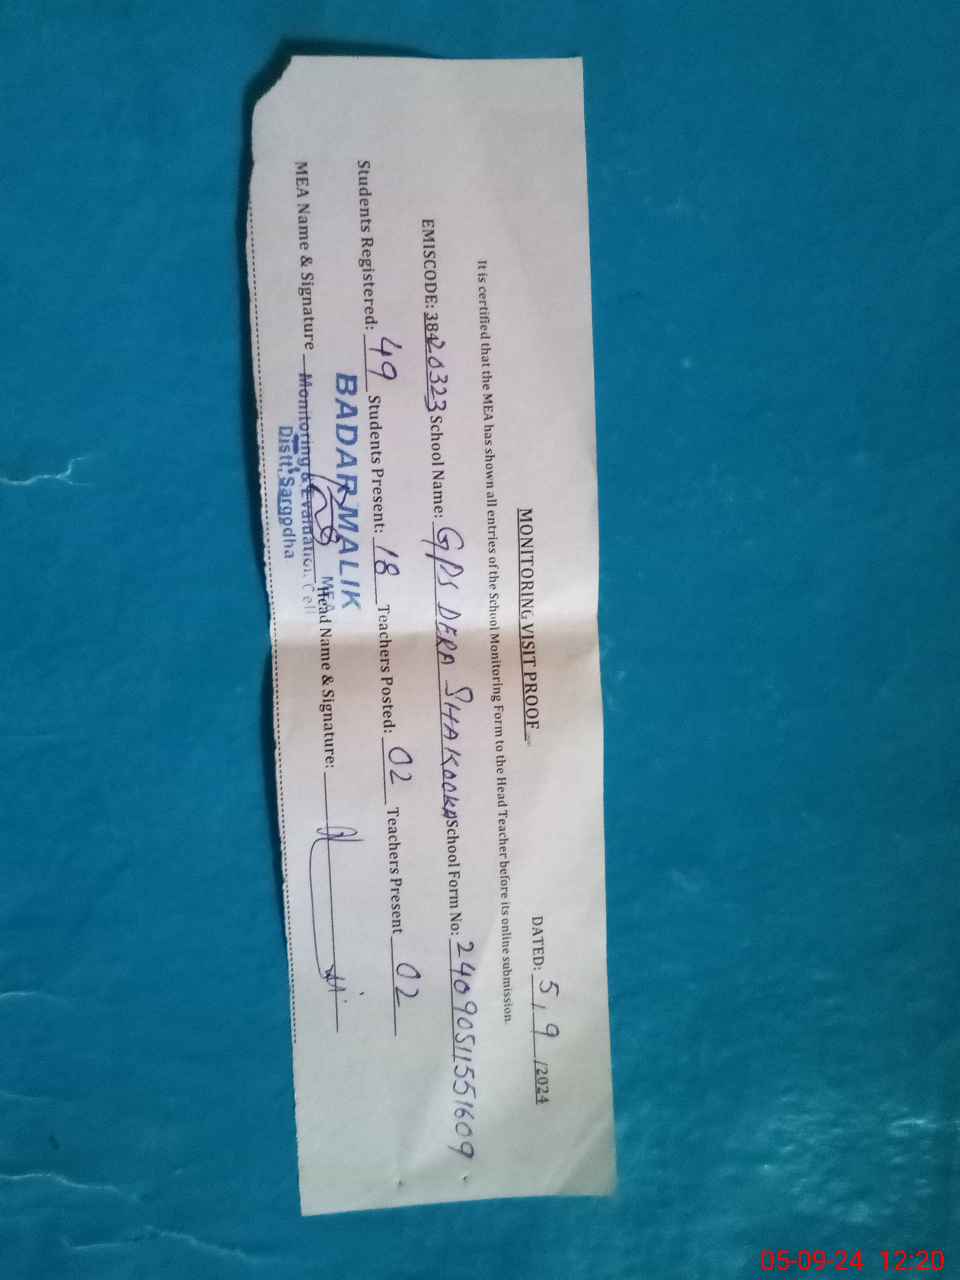 MONITORING VISIT PROOF
DATED: 5/9/2024
It is certified that the MEA has shown all entries of the School Monitoring Form to the Head Teacher before its online submission.
EMISCODE: 38420323 School Name: GPS DERA SHAKOOKA School Form No: 24090511551609
Students Registered: 49 Students Present: 18 Teachers Posted: 02 Teachers Present 02
BADAR MALIK
MEA
MEA Name & Signature Head Name & Signature:
Monitoring & Evaluation Cell
Distt. Sargodha
05-09-24 12:20